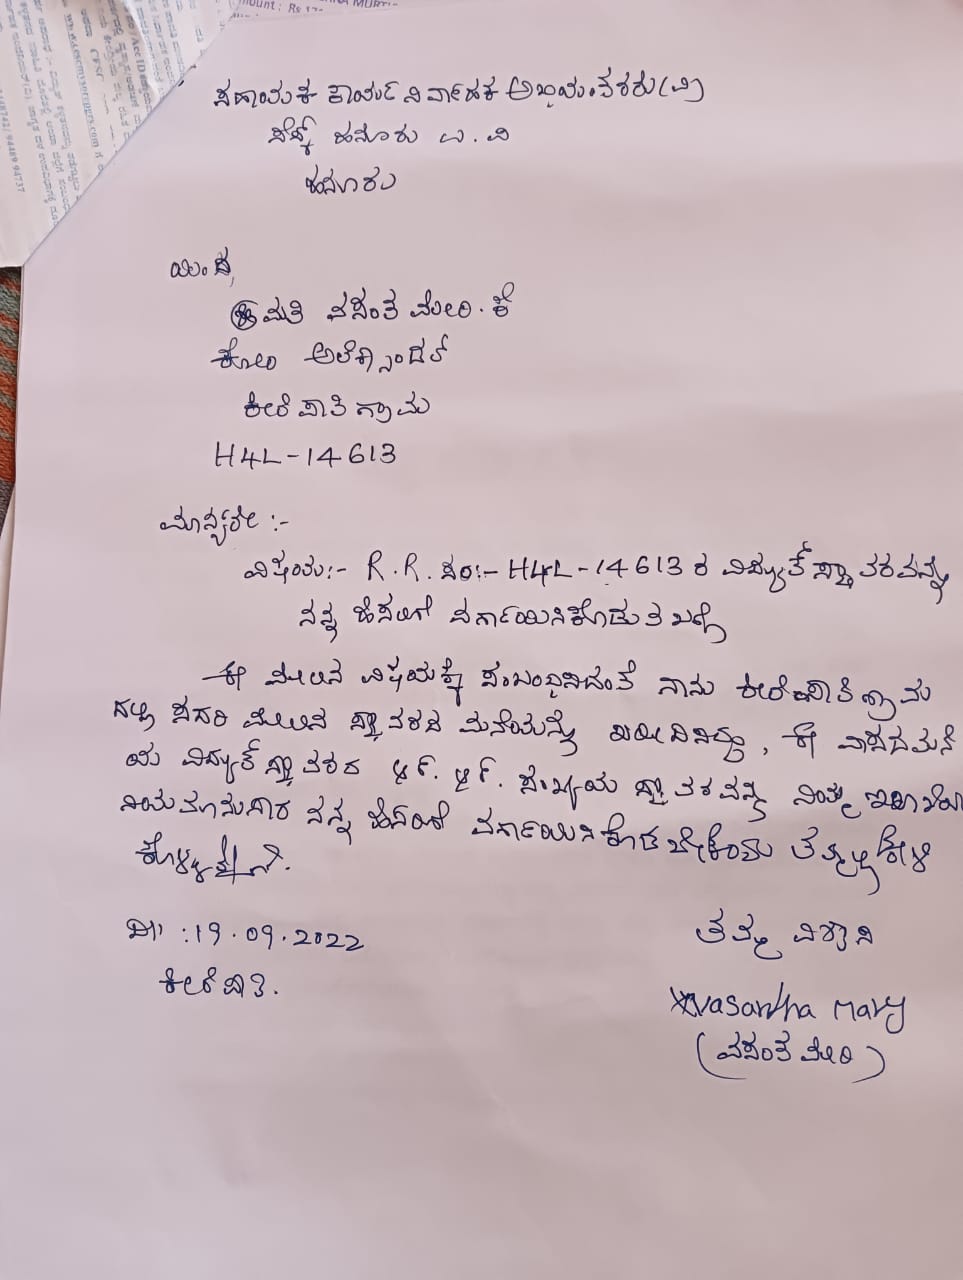 ಸಹಾಯಕ ಕಾರ್ಯನಿರ್ವಾಹಕ ಅಭಿಯಂತರರು(ವಿ)
ಸೆಸ್ಕ್ ಹನೂರು ಉ.ವಿ
ಹನೂರು
ಯಿಂದ,
ಶ್ರೀಮತಿ ವಸಂತ ಮೇರಿ. ಕೆ
ಕೋಂ ಅಲೆಕ್ಸಾಂಡರ್
ಕೀರೆಪಾತಿ ಗ್ರಾಮ
H4L-14613
ಮಾನ್ಯರೇ :-
ವಿಷಯ:- R.R.ನಂ:- H4L-14613 ರ ವಿದ್ಯುತ್ ಸ್ಥಾವರವನ್ನು
ನನ್ನ ಹೆಸರಿಗೆ ವರ್ಗಾಯಿಸಿಕೊಡುವ ಬಗ್ಗೆ
ಈ ಮೇಲಿನ ವಿಷಯಕ್ಕೆ ಸಂಬಂಧಿಸಿದಂತೆ ನಾನು ಕೀರೆಪಾತಿ ಗ್ರಾಮ
ದಲ್ಲಿ ಸದರಿ ಮೇಲಿನ ಸ್ಥಾವರದ ಮನೆಯನ್ನು ಖರೀದಿಸಿದ್ದು, ಈ ವಾಸದಮನೆ
ಯ ವಿದ್ಯುತ್ ಸ್ಥಾವರದ ಆರ್. ಆರ್. ಸಂಖ್ಯೆಯ ಸ್ಥಾವರವನ್ನು ನಿಮ್ಮ ಇಲಾಖೆಯ
ನಿಯಮಾನುಸಾರ ನನ್ನ ಹೆಸರಿಗೆ ವರ್ಗಾಯಿಸಿಕೊಡಬೇಕೆಂದು ತಮ್ಮಲ್ಲಿ ಕೇಳಿ
ಕೊಳ್ಳುತ್ತೇನೆ.
ದಿ// :19.09.2022
ತಮ್ಮ ವಿಶ್ವಾಸಿ
ಕೀರೆಪಾತಿ.
Vasantha Mary
(ವಸಂತ ಮೇರಿ)